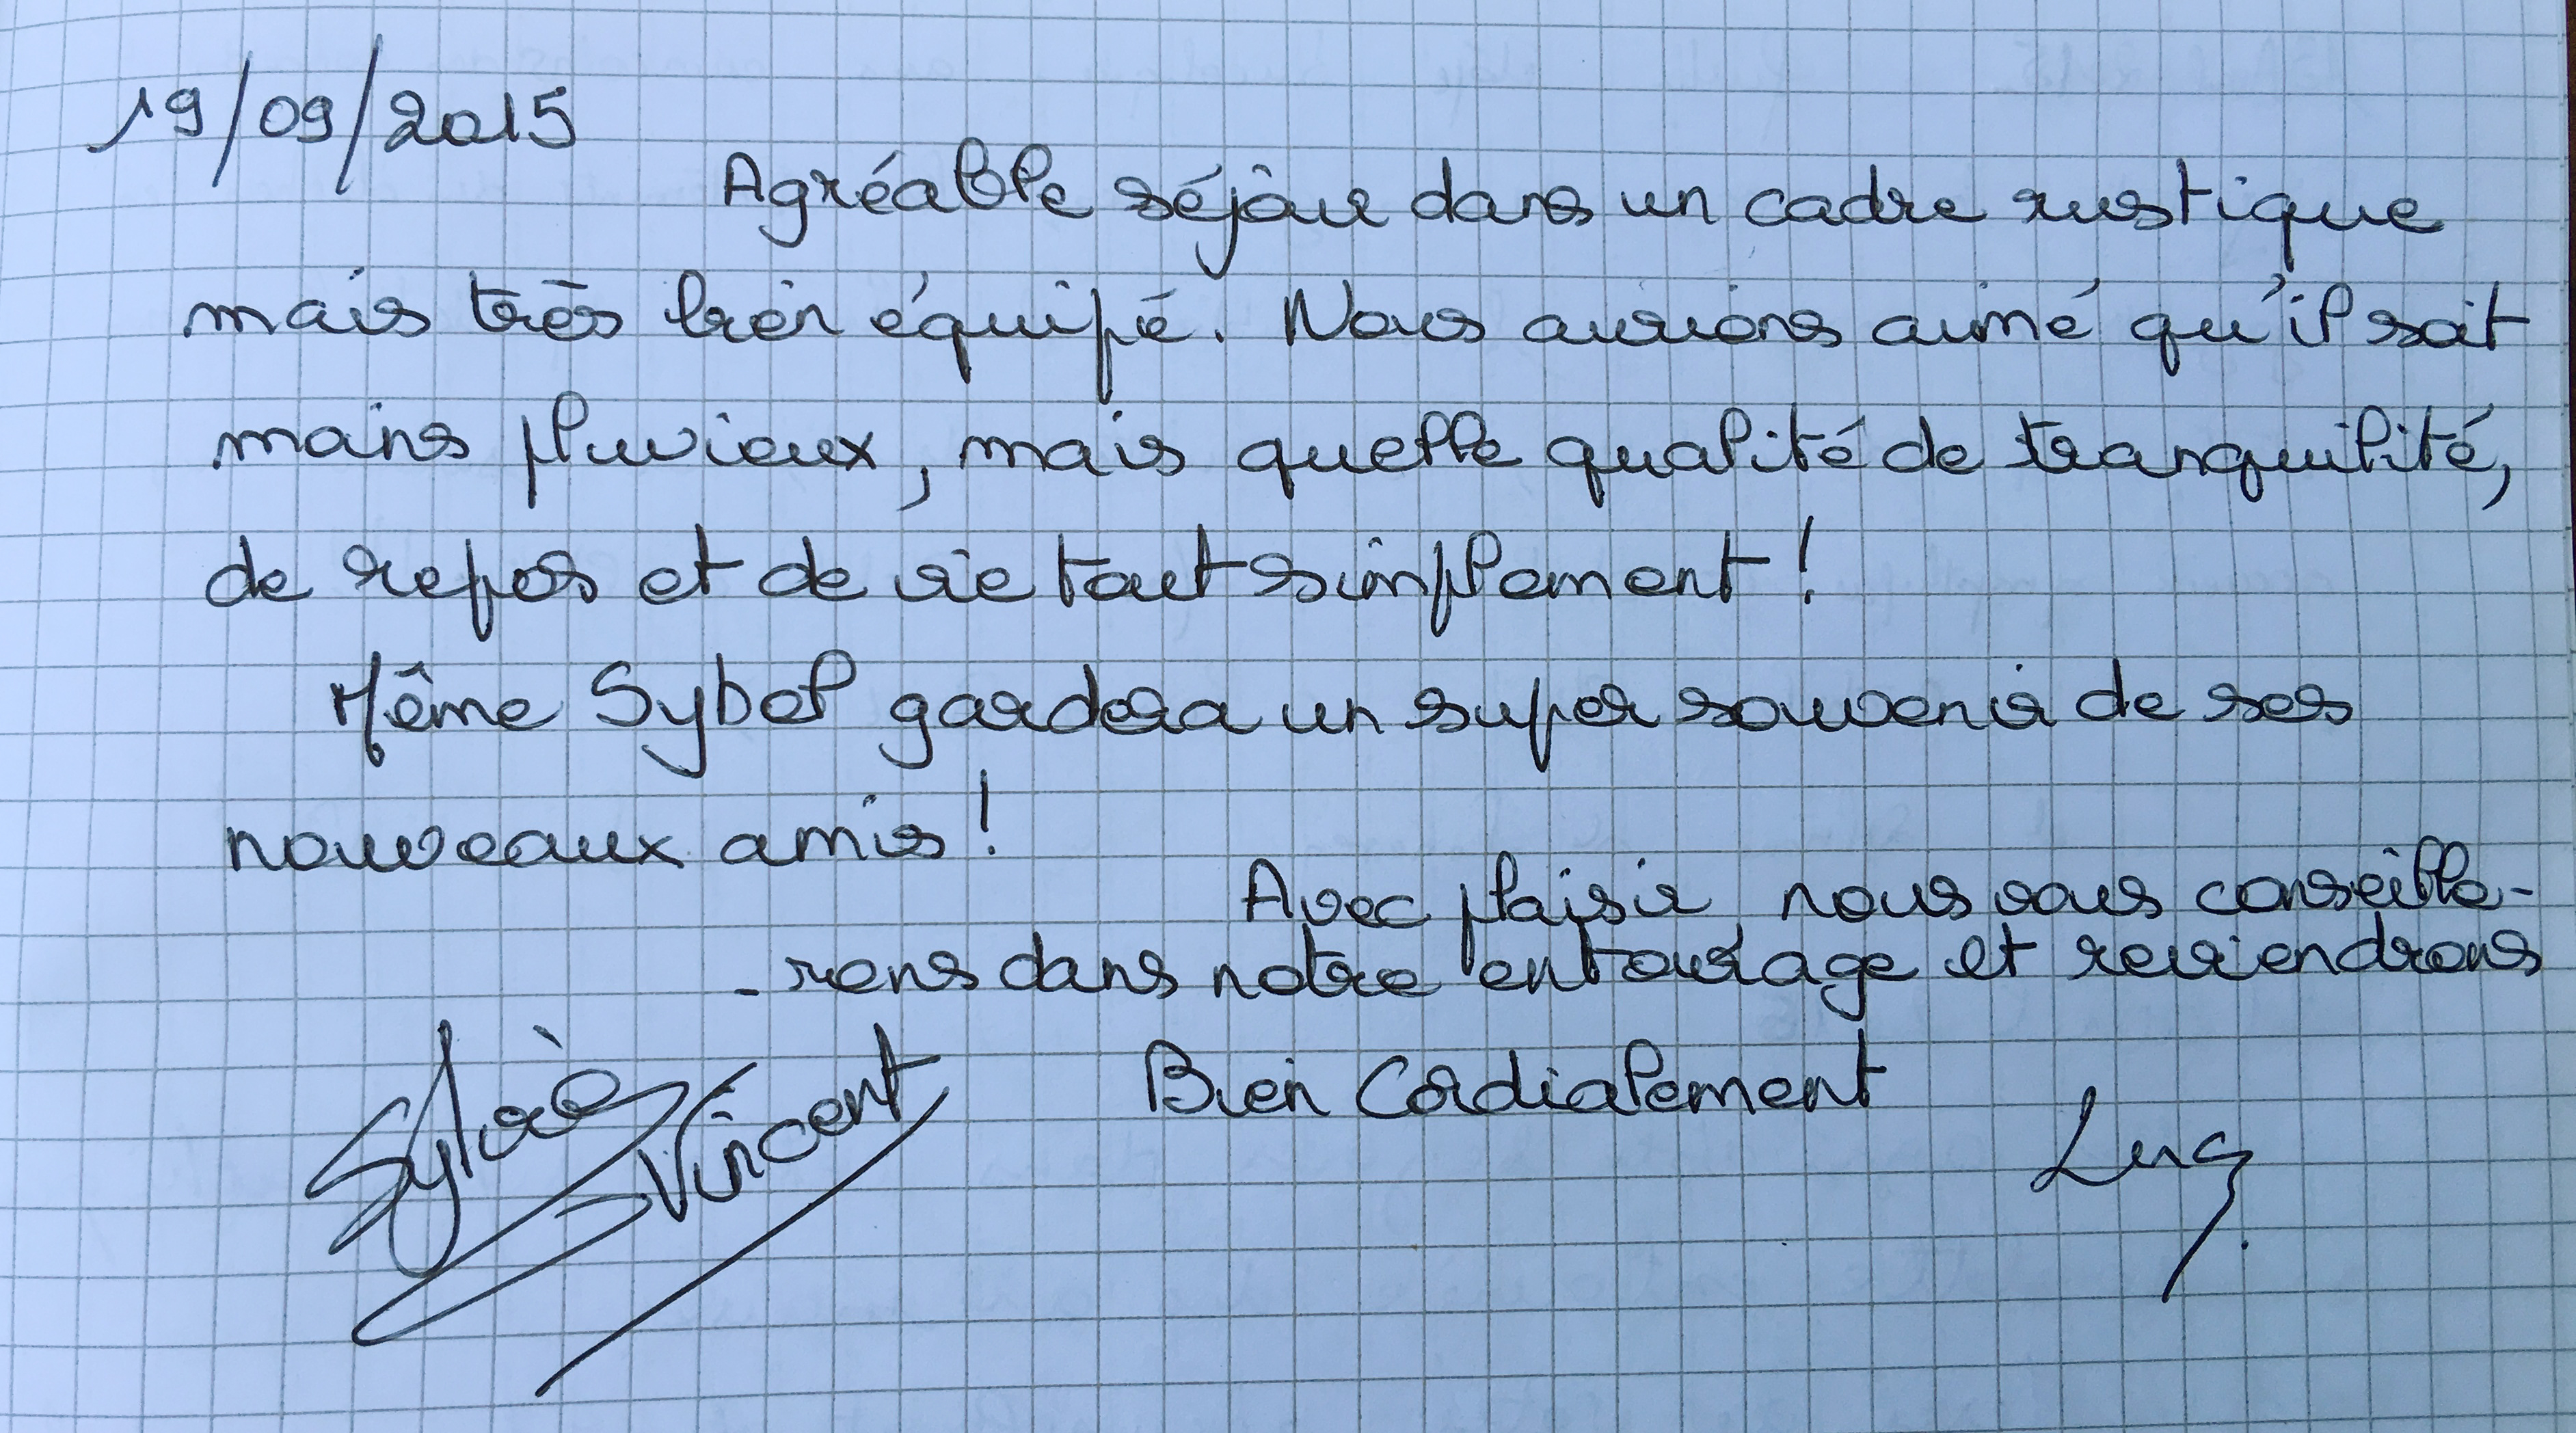 19/09/2015
Agréable séjour dans un cadre rustique
mais très bien équipé. Nous aurions aimé qu'il soit
moins pluvieux, mais quelle qualité de tranquilité,
de repos et de vie tout simplement !
Même Sybel gardera un super souvenir de ses
nouveaux amis !
Avec plaisir nous vous conseille-
-rons dans notre entourage et reviendrons
Bien Cordialement
Sylvie Vincent
Luc